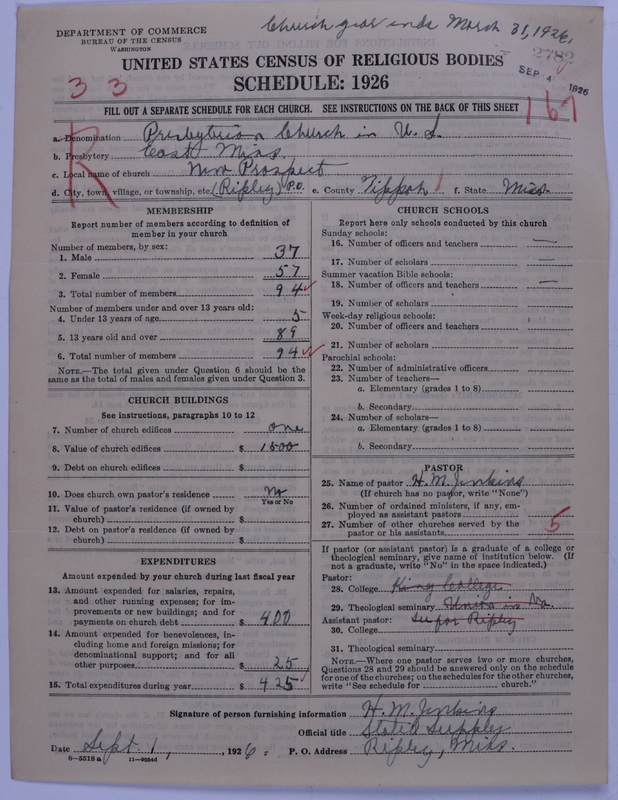 Church year ends March 31, 1926.
DEPARTMENT OF COMMERCE
BUREAU OF THE CENSUS
WASHINGTON
2782
SEP 4 1926
UNITED STATES CENSUS OF RELIGIOUS BODIES
SCHEDULE: 1926
3 3
167
FILL OUT A SEPARATE SCHEDULE FOR EACH CHURCH. SEE INSTRUCTIONS ON THE BACK OF THIS SHEET
R
a. Denomination Presbyterian Church in U. S.
b. Presbytery East Miss.
c. Local name of church New Prospect
d. City, town, village, or township, etc. (Ripley) P.O. e. County Tippah f. State Miss.
MEMBERSHIP
Report number of members according to definition of
member in your church
Number of members, by sex:
1. Male 37
2. Female 57
3. Total number of members 94
Number of members under and over 13 years old:
4. Under 13 years of age 5
5. 13 years old and over 89
6. Total number of members 94
NOTE.—The total given under Question 6 should be
same as the total of males and females given under Question 3.
CHURCH BUILDINGS
See instructions, paragraphs 10 to 12
7. Number of church edifices one
8. Value of church edifices $ 1500
9. Debt on church edifices $
10. Does church own pastor's residence No
Yes or No
11. Value of pastor's residence (if owned by
church) $
12. Debt on pastor's residence (if owned by
church) $
EXPENDITURES
Amount expended by your church during last fiscal year
13. Amount expended for salaries, repairs,
and other running expenses; for im-
provements or new buildings; and for
payments on church debt $ 400
14. Amount expended for benevolences, in-
cluding home and foreign missions; for
denominational support; and for all
other purposes $ 25
15. Total expenditures during year $ 425
CHURCH SCHOOLS
Report here only schools conducted by this church
Sunday schools:
16. Number of officers and teachers —
17. Number of scholars —
Summer vacation Bible schools:
18. Number of officers and teachers —
19. Number of scholars
Week-day religious schools:
20. Number of officers and teachers
21. Number of scholars
Parochial schools:
22. Number of administrative officers
23. Number of teachers—
a. Elementary (grades 1 to 8)
b. Secondary
24. Number of scholars—
a. Elementary (grades 1 to 8)
b. Secondary
PASTOR
25. Name of pastor H. M. Jenkins
(If church has no pastor, write "None")
26. Number of ordained ministers, if any, em-
ployed as assistant pastors
27. Number of other churches served by the
pastor or his assistants 5
If pastor (or assistant pastor) is a graduate of a college or
theological seminary, give name of institution below. (If
not a graduate, write "No" in the space indicated.)
Pastor:
28. College King College
29. Theological seminary Union in Va.
Assistant pastor: See for Ripley
30. College
31. Theological seminary
NOTE.—Where one pastor serves two or more churches,
Questions 28 and 29 should be answered only on the schedule
for one of the churches; on the schedules for the other churches,
write "See schedule for church."
Signature of person furnishing information H. M. Jenkins
Official title Stated Supply
Date Sept 1, 1926. P. O. Address Ripley, Miss.
8—5518a 11—9554d